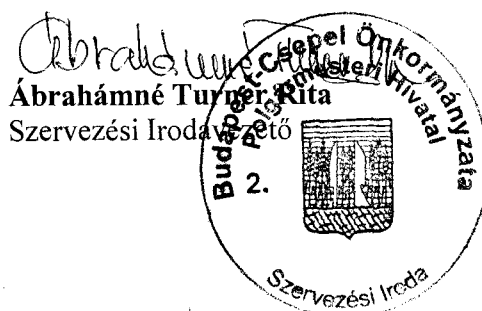 Ábrahámné Turner Rita
Ábrahámné Turner Rita
Szervezési Irodavezető
Budapest-Csepel Önkormányzata
Polgármesteri Hivatal
2.
Szervezési Iroda